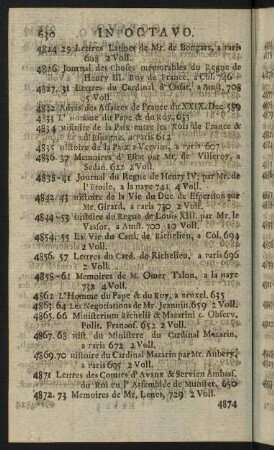 630 IN OCTAVO.
4824 25 Lettres Latines de Mr. de Bongars, a paris
608 2 Voll.
4826 Journal des Choses memorables du Regne de
Henry III. Roy de France, a Col. 746
4827. 31 Lettres du Cardinal d'Ossat, a Amst. 708
5 Voll.
4832 Advis des Affaires de France du XXIX. Dec. 589
4833 L'Homme du Pape & du Roy, 635
4834 Histoire de la Paix entre les Rois de France &
d'Espagne, a paris 612
4835 Histoire de la Paix a Vervins, a paris 607
4836 37 Memoires d'Estat par Mr. de Villeroy, a
Sedan. 622 2 Voll.
4838-41 Journal du Regne de Henry IV. par Mr. de
l'Etoile, a la haye 741 4 Voll.
4842/43 Histoire de la Vie du Duc de Espernon par
Mr. Girard, a paris 730 2 Voll.
4844-53 Histoire du Regne de Louis XIII. par Mr. le
Vassor, a Amst. 700 10 Voll.
4854. 55 La Vie du Card. de Richelieu, a Col. 694
2 Voll.
4856. 57 Lettres du Card. de Richelieu, a paris 696
2 Voll.
4858-61 Memoires de M. Omer Talon, a la haye
732 4 Voll.
4862 L'Homme du Pape & du Roy, a bruxel. 635
4863. 64 Les Negotiations de Mr. Jeannin. 659 2 Voll.
4865. 66 Ministerium Richelii & Mazarini c. Observ.
Polit. Francof. 652 2 Voll.
4867. 68 Hist. du Ministere du Cardinal Mazarin,
a paris 672 2 Voll.
4869.70 Histoire du Cardinal Mazarin par Mr. Aubery,
a paris 695 2 Voll.
4871 Lettres des Comtes d'Avaux & Servien Ambass.
du Roi en l'Assemblée de Munster, 650
4872. 73 Memoires de Mr. Lenet, 729 2 Voll.
4874